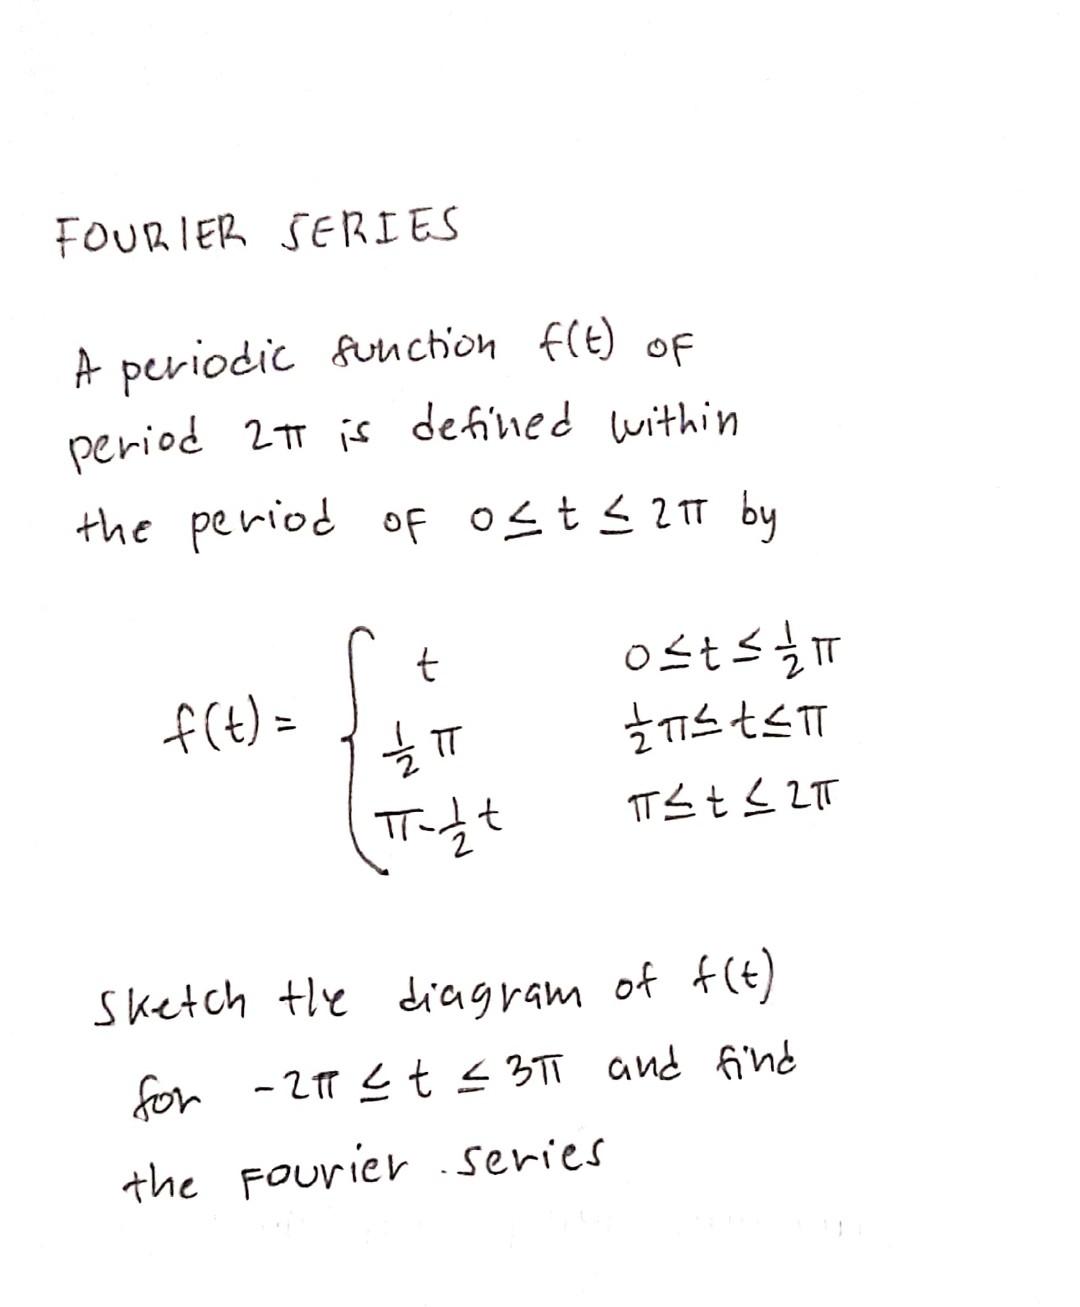 FOURIER SERIES
A periodic function f(t) of
period 2π is defined within
the period of 0≤t≤2π by
f(t) = { t 0≤t≤½π
½π ½π≤t≤π
π-½t π≤t≤2π
Sketch the diagram of f(t)
for -2π≤t≤3π and find
the Fourier series